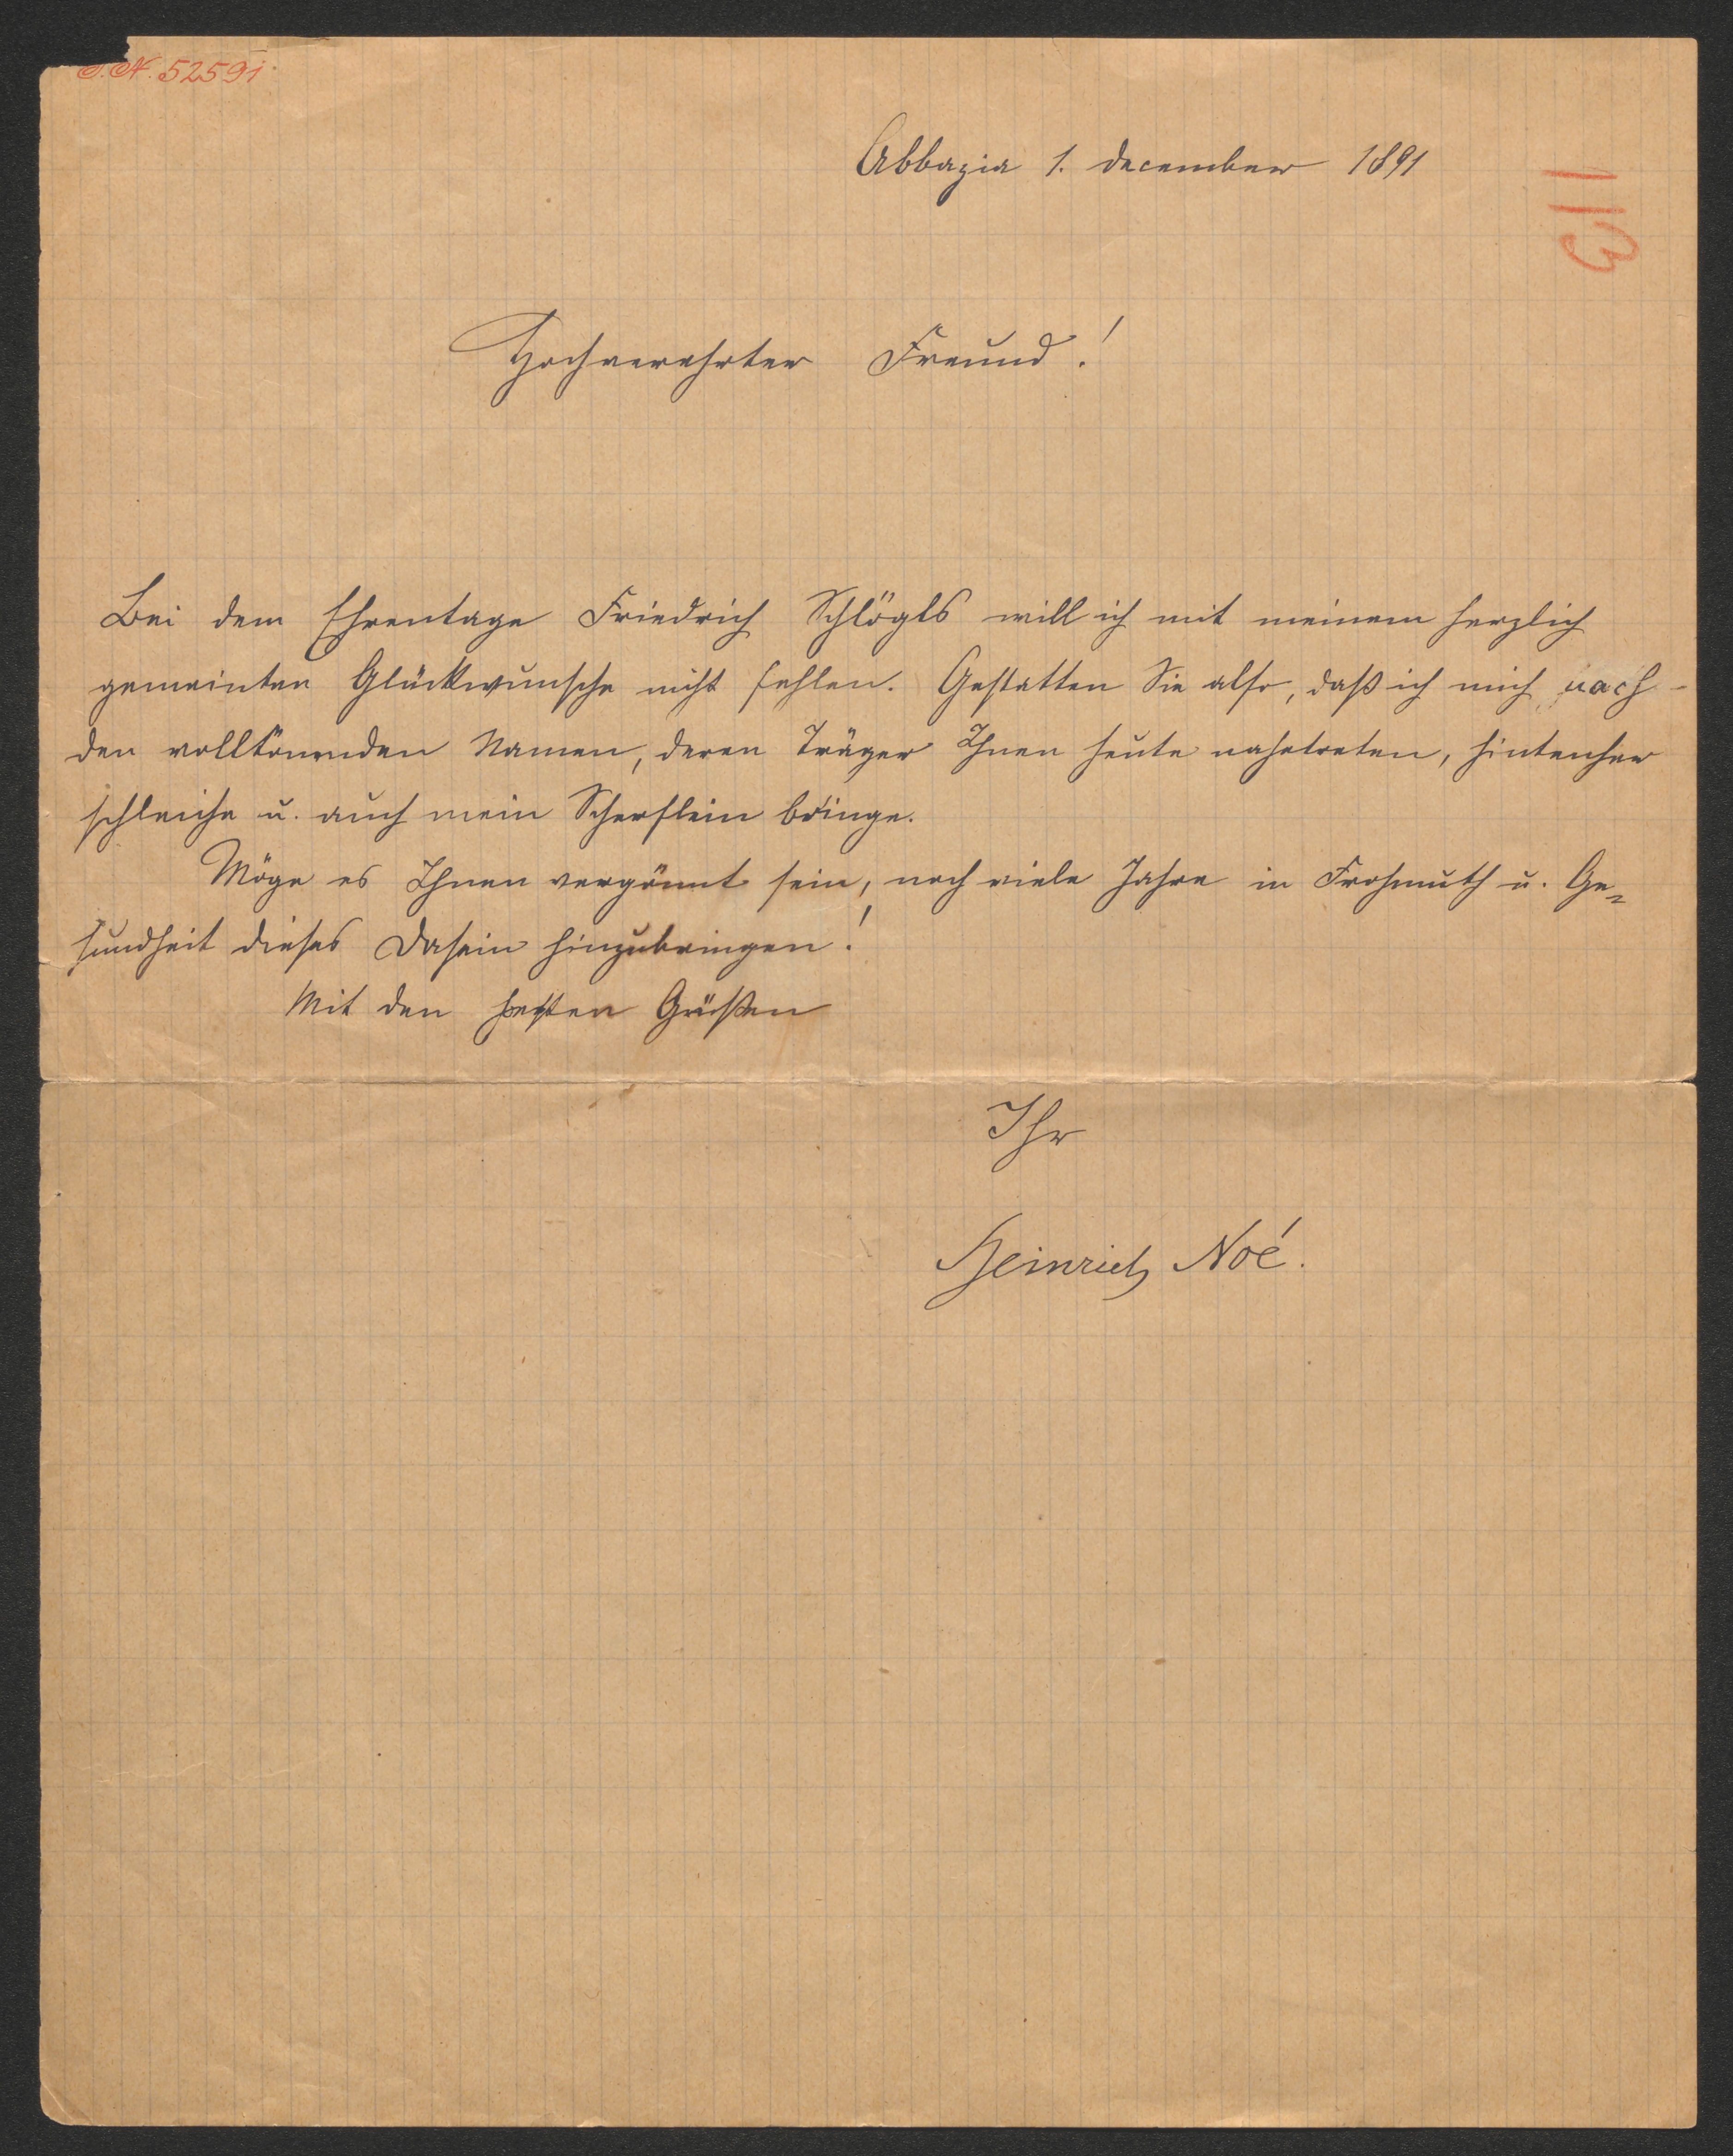 I.N. 52591.
Abbazia 1. December 1891
113
Hochverehrter Freund!
Bei dem Ehrentage Friedrich Schlögls will ich mit meinem herzlich
gemeinten Glückwunsche nicht fehlen. Gestatten Sie also, daß ich mich nach
den volltönenden Namen, deren Träger Ihnen heute nahetreten, hintenher
schleiche u. auch mein Scherflein bringe.
Möge es Ihnen vergönnt sein, noch viele Jahre in Frohmuth u. Ge=
sundheit dieses Dasein hinzubringen!
Mit den besten Grüßen
Ihr
Heinrich Noé.